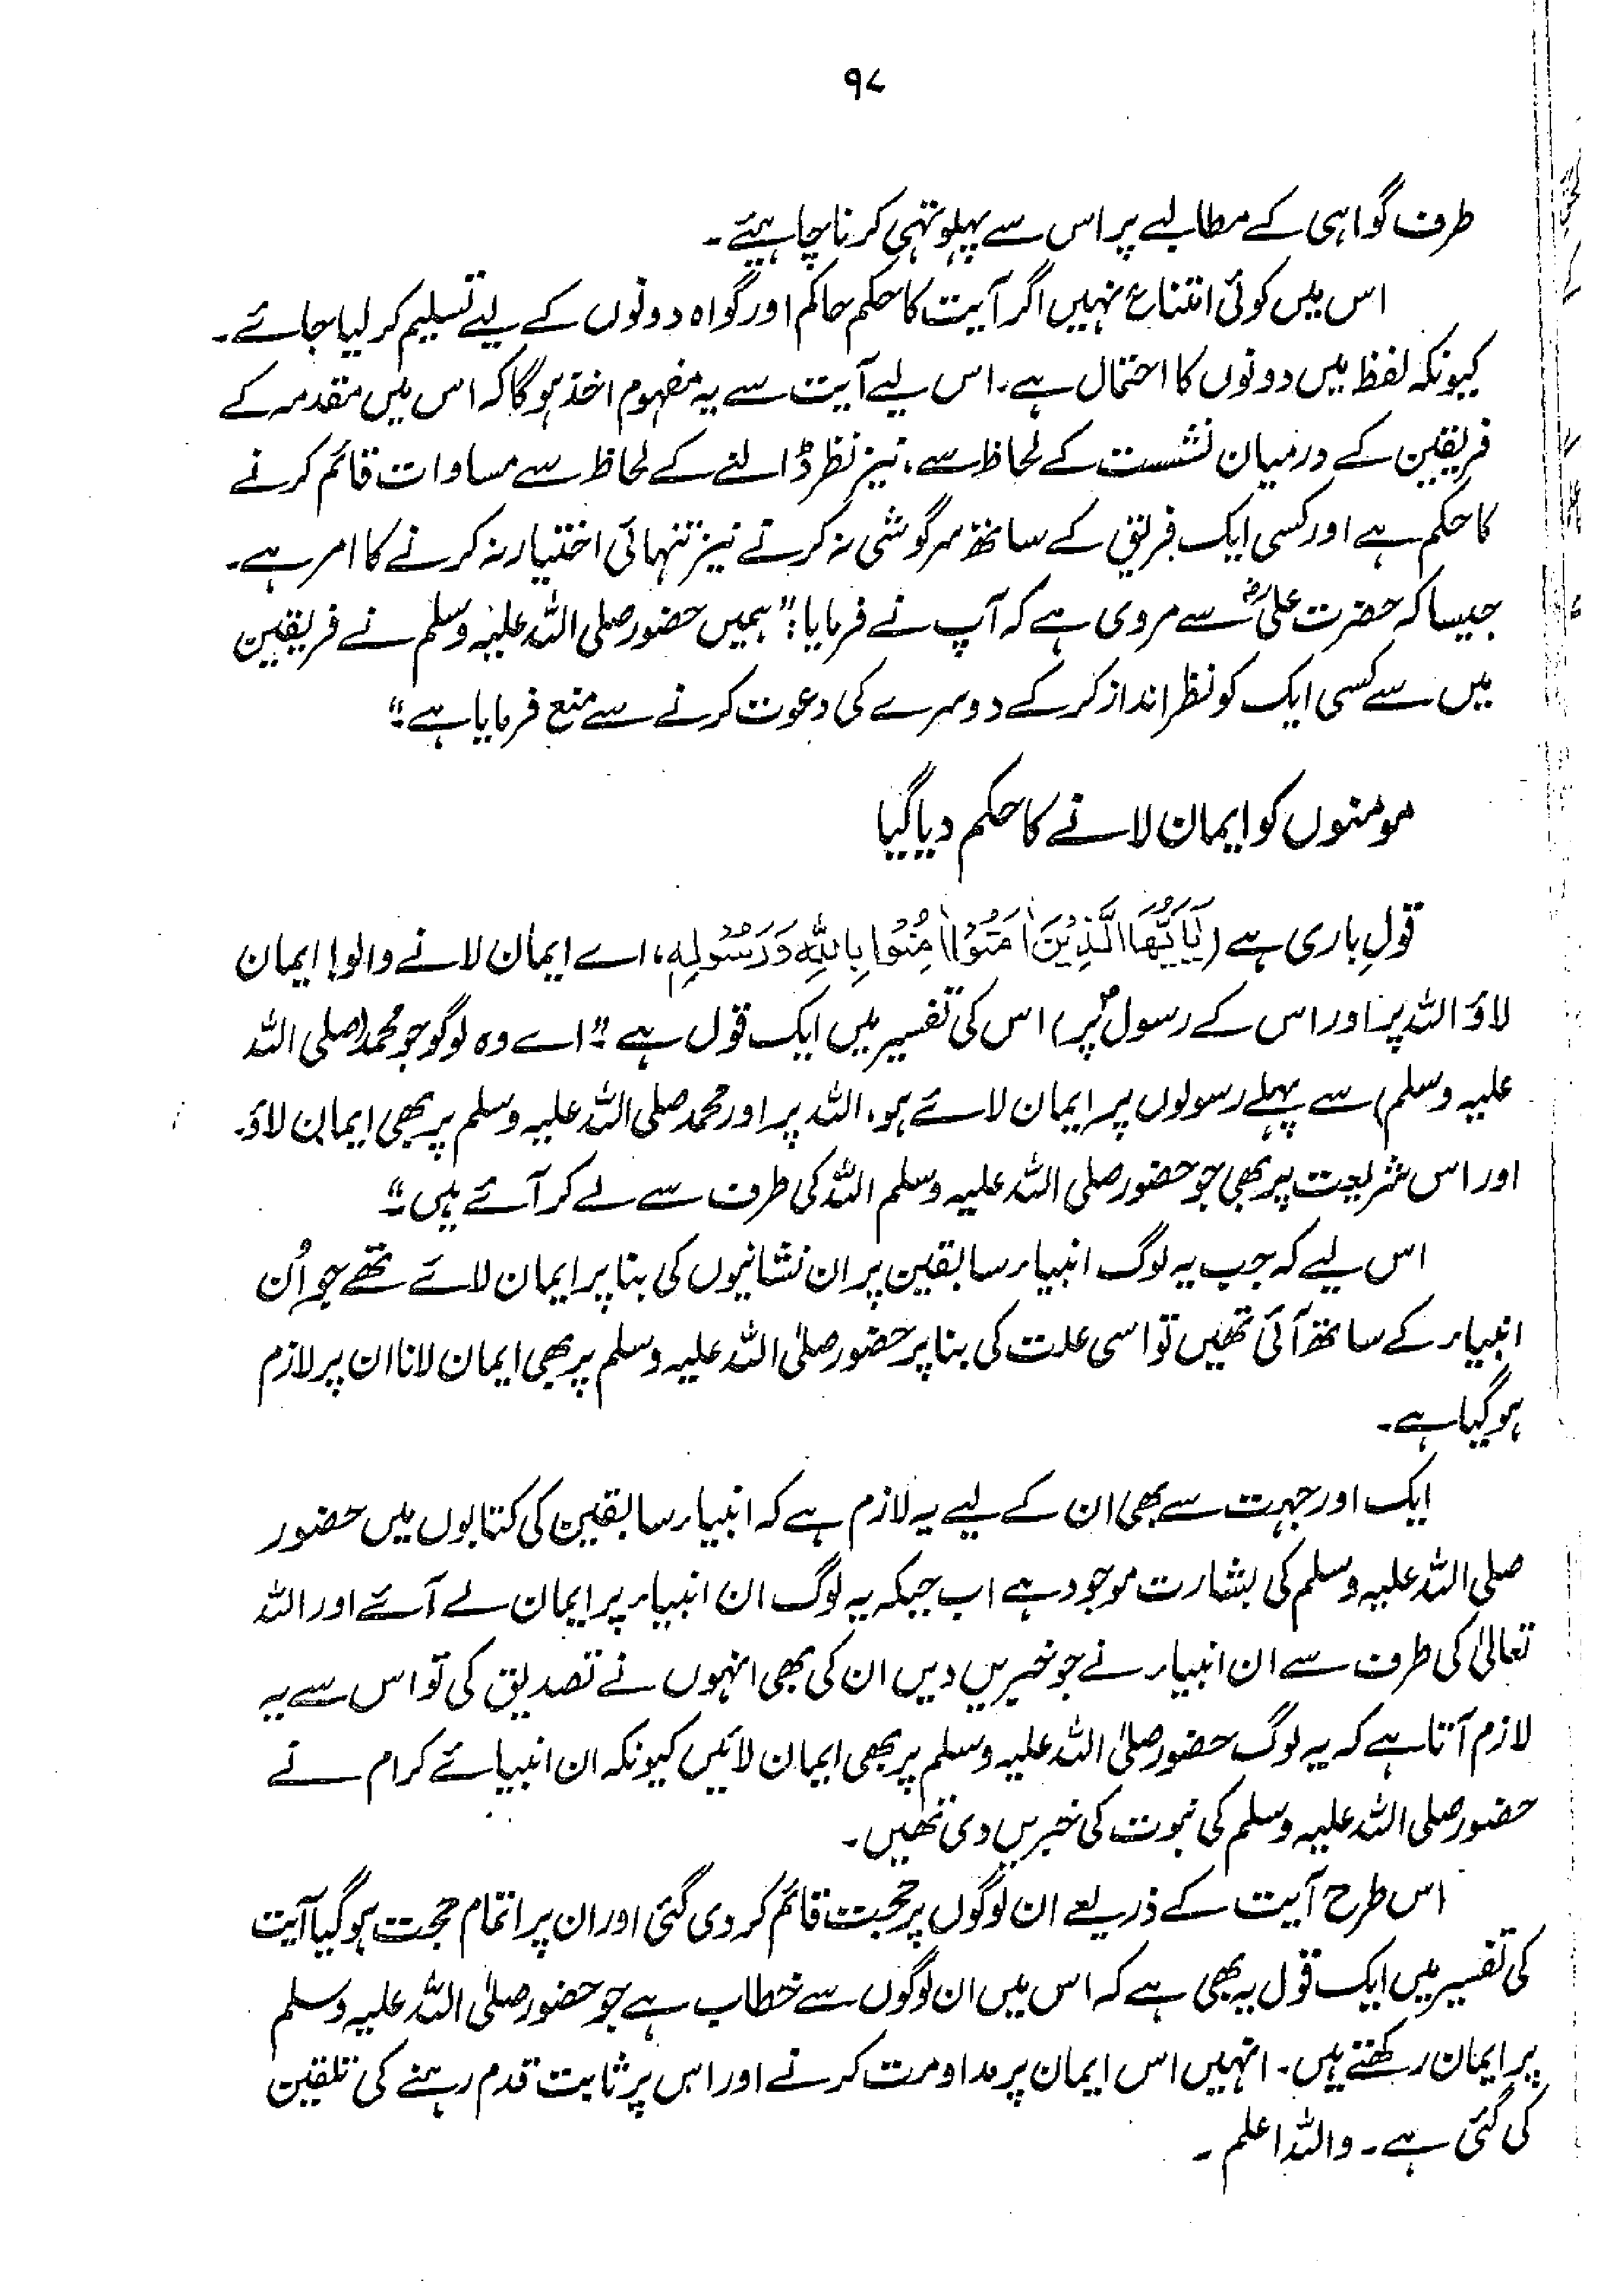 ۹۷
طرف گواہی کے مطالبے پر اس سے پہلو تہی کرنا چاہیئے۔
اس میں کوئی امتناع نہیں اگر آیت کا حکم حاکم اور گواہ دونوں کے لیے تسلیم کر لیا جائے۔
کیونکہ لفظ میں دونوں کا احتمال ہے۔ اس لیے آیت سے یہ مفہوم اخذ ہو گا کہ اس میں مقدمہ کے
فریقین کے درمیان نشست کے لحاظ سے، نیز نظر ڈالنے کے لحاظ سے مساوات قائم کرنے
کا حکم ہے اور کسی ایک فریق کے ساتھ سرگوشی نہ کرنے نیز تنہائی اختیار نہ کرنے کا امر ہے۔
جیسا کہ حضرت علیؓ سے مروی ہے کہ آپ نے فرمایا: "ہمیں حضور صلی اللہ علیہ وسلم نے فریقین
میں سے کسی ایک کو نظر انداز کر کے دوسرے کی دعوت کرنے سے منع فرمایا ہے۔"
مومنوں کو ایمان لانے کا حکم دیا گیا
قولِ باری ہے (یٰٓاَیُّھَا الَّذِیْنَ اٰمَنُوْا اٰمِنُوْا بِاللّٰہِ وَرَسُوْلِہٖ، اے ایمان لانے والو! ایمان
لاؤ اللہ پر اور اس کے رسولؐ پر) اس کی تفسیر میں ایک قول ہے "اے وہ لوگو جو محمد (صلی اللہ
علیہ وسلم) سے پہلے رسولوں پر ایمان لائے ہو، اللہ پر اور محمد صلی اللہ علیہ وسلم پر بھی ایمان لاؤ۔
اور اس شریعت پر بھی جو حضور صلی اللہ علیہ وسلم اللہ کی طرف سے لے کر آئے ہیں۔"
اس لیے کہ جب یہ لوگ انبیاء سابقین پر ان نشانیوں کی بنا پر ایمان لائے تھے جو اُن
انبیاء کے ساتھ آئی تھیں تو اسی علت کی بنا پر حضور صلی اللہ علیہ وسلم پر بھی ایمان لانا ان پر لازم
ہو گیا ہے۔
ایک اور جہت سے بھی ان کے لیے یہ لازم ہے کہ انبیاء سابقین کی کتابوں میں حضور
صلی اللہ علیہ وسلم کی بشارت موجود ہے اب جبکہ یہ لوگ ان انبیاء پر ایمان لے آئے اور اللہ
تعالیٰ کی طرف سے ان انبیاء نے جو خبریں دیں ان کی بھی انہوں نے تصدیق کی تو اس سے یہ
لازم آتا ہے کہ یہ لوگ حضور صلی اللہ علیہ وسلم پر بھی ایمان لائیں کیونکہ ان انبیائے کرام نے
حضور صلی اللہ علیہ وسلم کی نبوت کی خبریں دی تھیں۔
اس طرح آیت کے ذریعے ان لوگوں پر حجت قائم کر دی گئی اور ان پر اتمام حجت ہو گیا آیت
کی تفسیر میں ایک قول یہ بھی ہے کہ اس میں ان لوگوں سے خطاب ہے جو حضور صلی اللہ علیہ وسلم
پر ایمان رکھتے ہیں۔ انہیں اس ایمان پر مداومت کرنے اور اس پر ثابت قدم رہنے کی تلقین
کی گئی ہے۔ واللہ اعلم۔